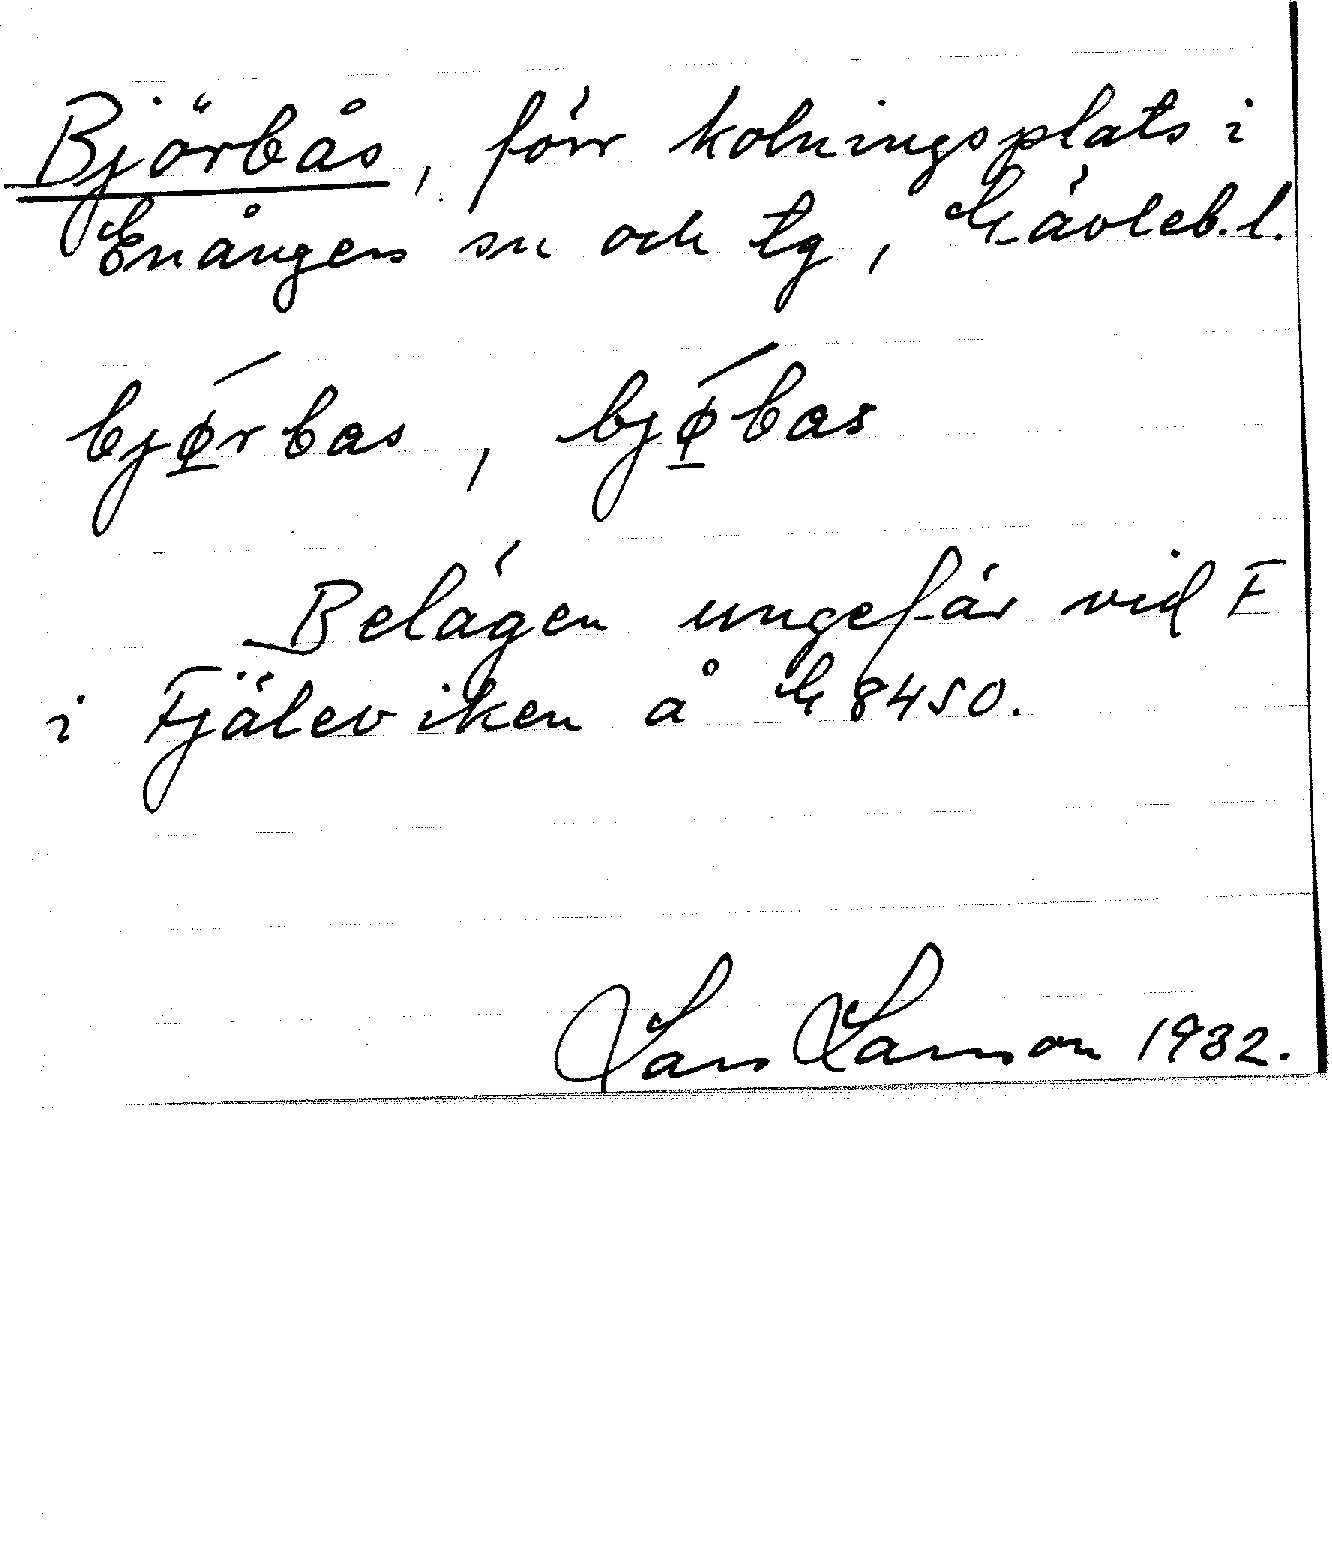 Björbås, förr kolningsplats i
Enångers sn och tg, Gävleb. l.
bjǿ̲rbas, bjǿ̲bas
Belägen ungefär vid F
i Fjäleviken å G 8450.
Lars Larsson 1932.